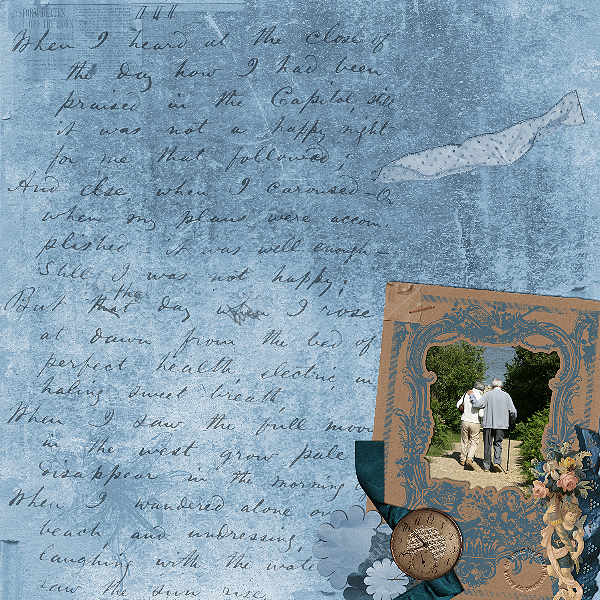 When I heard at the close of
the day how I had been
praised in the Capitol, still
it was not a happy night
for me that followed;
And else, when I caroused — Or
when my plans were accom-
plished — it was well enough —
Still I was not happy;
But that the day when I rose
at dawn from the bed of
perfect health, electric, in-
haling sweet breath,
When I saw the full moon
in the west grow pale
disappear in the morning
When I wandered alone on
beach, and undressing,
laughing with the wate
saw the sun rise,